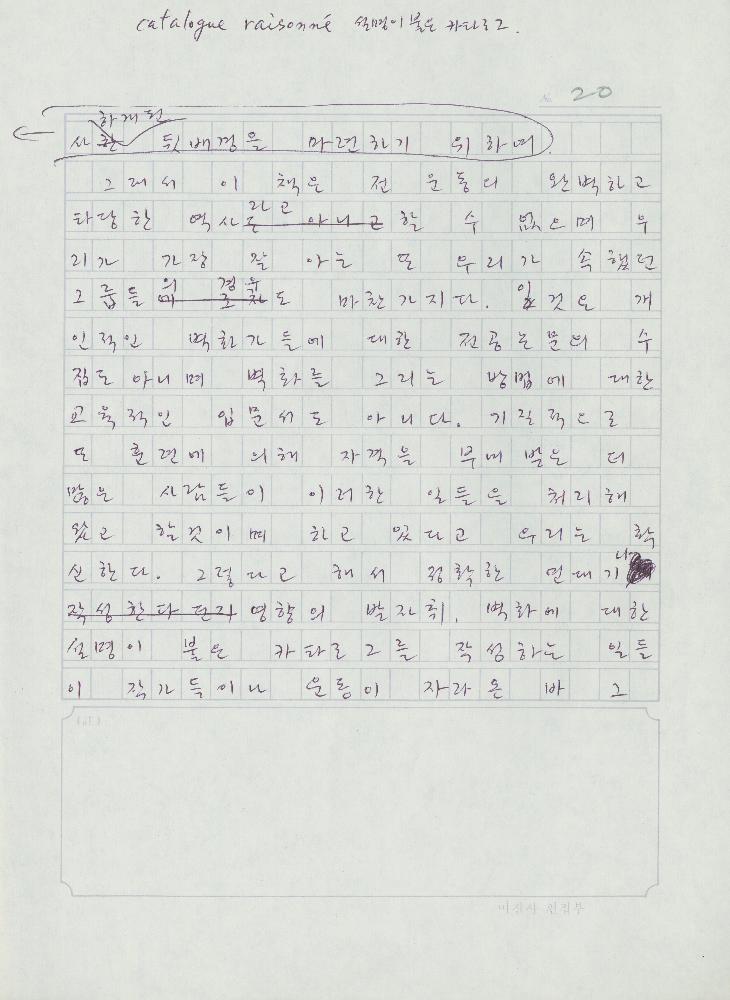 catalogue raisonné 설명이 붙은 카타로그.
20
하게 된
사한 뒷배경을 마련하기 위하며.
그래서 이 책은 전 운동의 완벽하고
라고
타당한 역사는 아니고 할 수 없으며 우
리가 가장 잘 아는 또 우리가 속했던
의 경우
그룹들 도 마찬가지다. 일것은 개
인적인 벽화가들에 대한 전공논문의 수
집도 아니며 벽화를 그리는 방법에 대한
교육적인 입문서도 아니다. 기질적으로
또 훈련에 의해 자격을 부여 받은 더
많은 사람들이 이러한 일들을 처리해
왔고 할것이며 하고 있다고 우리는 확
나
신한다. 그렇다고 해서 정확한 연대기
작성한다던가 영향의 발자취, 벽화에 대한
설명이 붙은 카타로그를 작성하는 일들
이 작가들이나 운동이 자라온 바 그
미진사 편집부